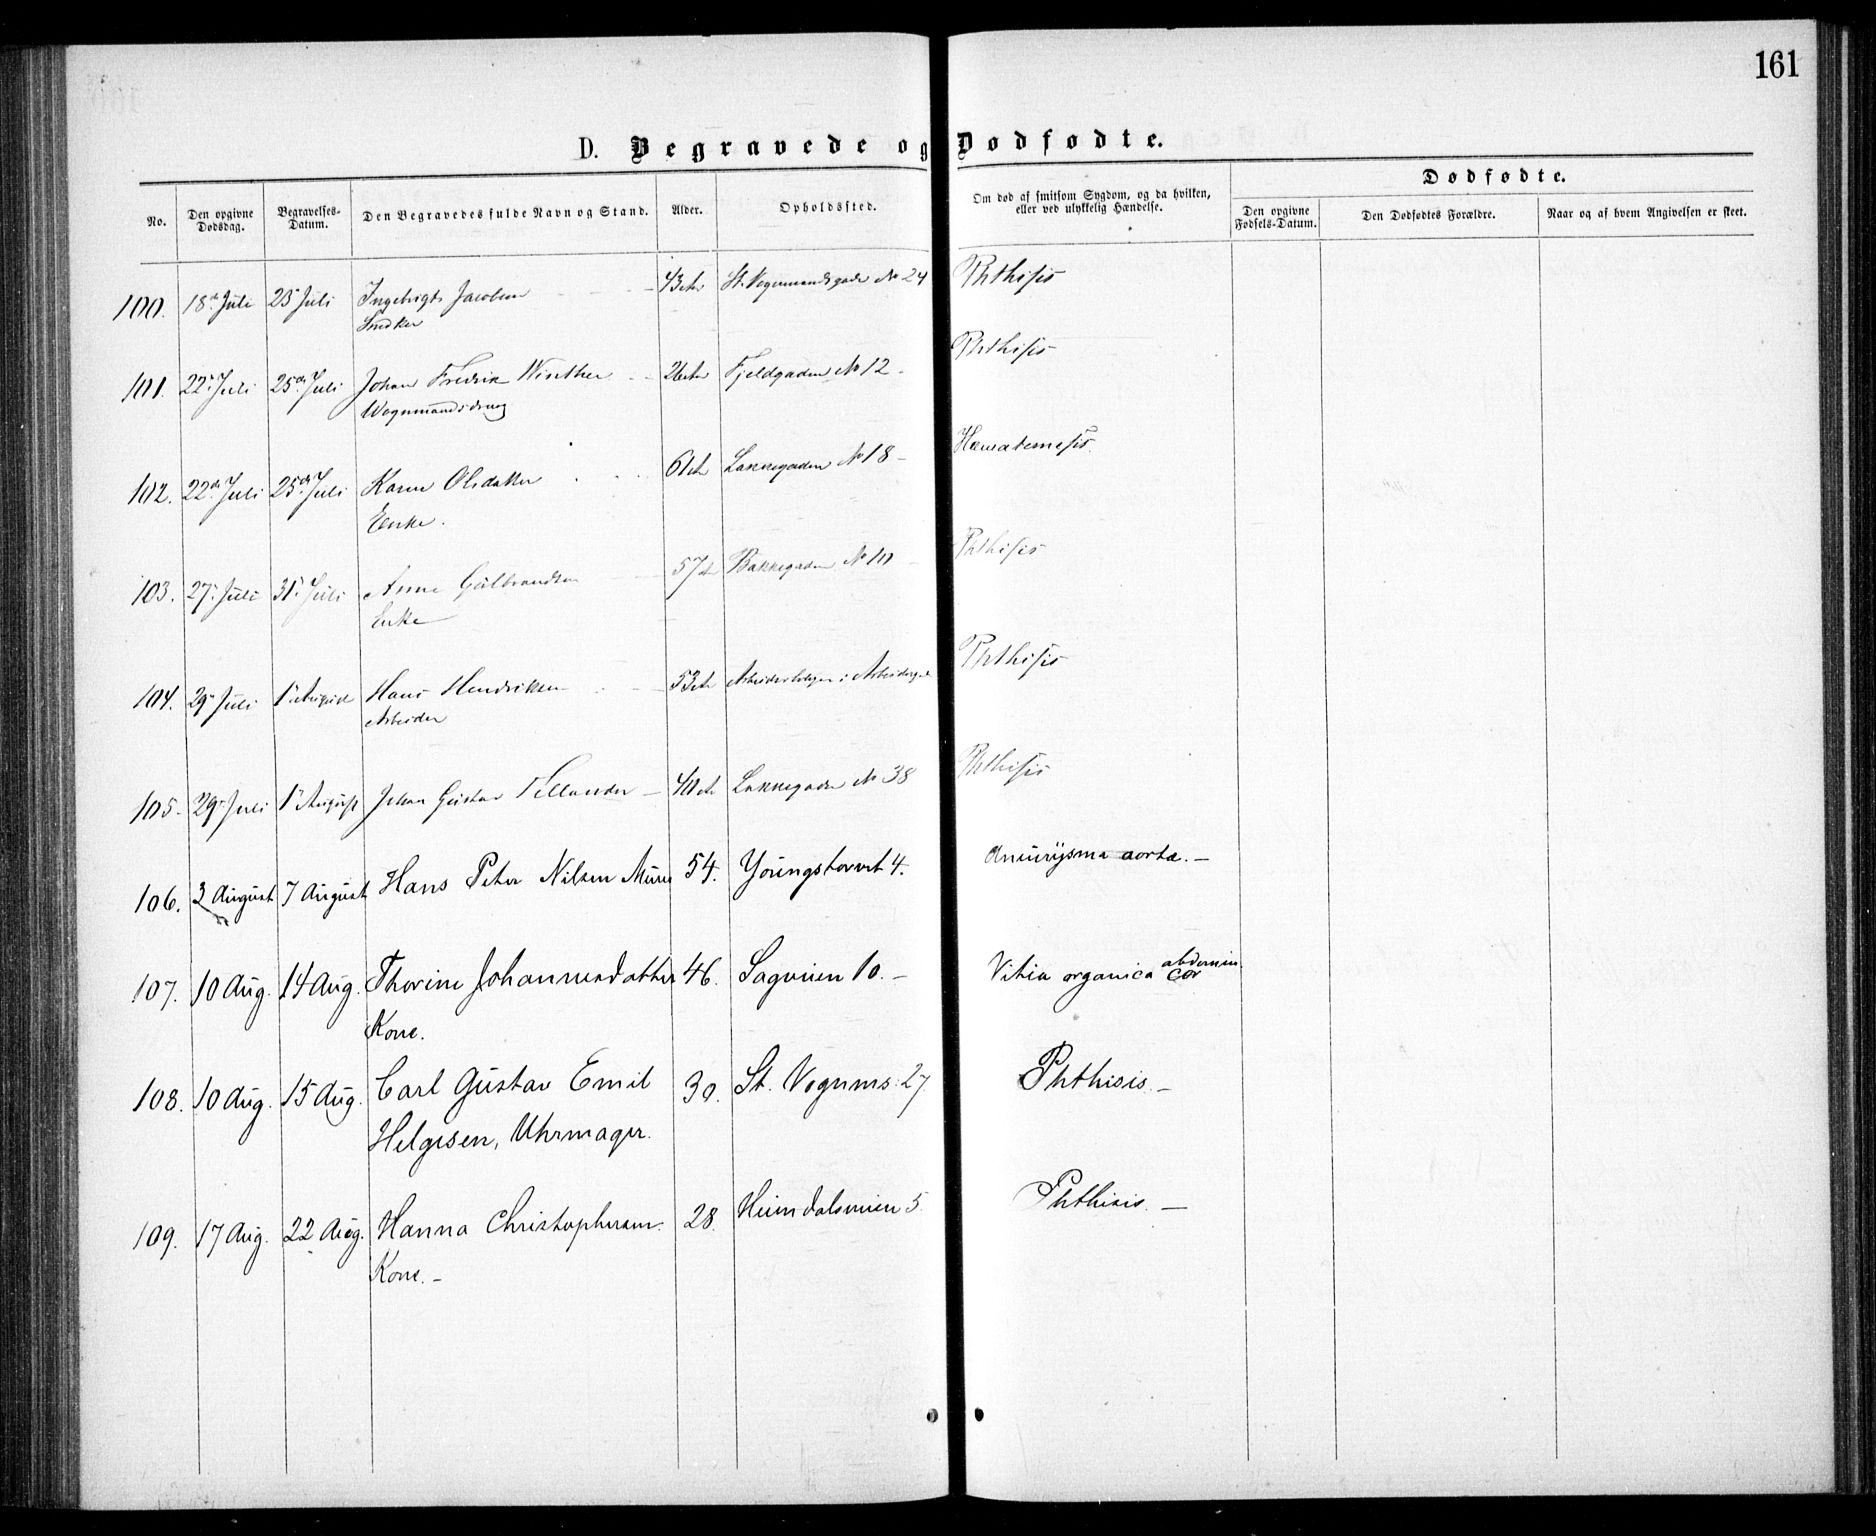 161
D. Begravede og Dødfødte.
No. Den opgivne Dødsdag. Begravelses-Datum. Den Begravedes fulde Navn og Stand. Alder. Opholdssted. Om død af smitsom Sygdom, og da hvilken, eller ved ulykkelig Hændelse. Dødfødte.
Den opgivne Fødsels-Datum. Den Dødfødtes Forældre. Naar og af hvem Angivelsen er skeet.
100. 18de Juli 25 Juli Ingebrigt Jacobsen 43 St. Vognmandsgade No 24 Phthisis
Snedker
101. 22 Juli 25de Juli Johan Fredrik Winther 26 Fjeldgaden No 12 Phthisis
Wognmandsdreng
102. 22de Juli 25de Juli Karen Olsdatter 61 Lakkegaden No 18 Hæmatemesis
Enke.
103. 27 Juli 31 Juli Anne Gulbrandsen 57 Bakkegaden No 10 Phthisis
Enke
104. 29 Juli 1 August Hans Hendriksen 53 Arbeiderboligen i Phthisis
Arbeider
105. 29 Juli 1 August Johan Gustav Tillander 40 Lakkegaden No 38 Phthisis
106. 3 August 7 August Hans Peter Nilsen 54. Youngstorvet 4. Aneurysma aorta. —
107. 10 Aug. 14 Aug. Thorine Johannesdatter 46. Sagveien 10. — Vitia organica abdomin. cor
Kone.
108. 10 Aug. 15 Aug. Carl Gustav Emil 30. St. Vognms: 27. Phthisis. —
Helgesen, Uhrmager.
109. 17 Aug. 22 Aug. Hanna Christophersen. 28. Heimdalsveien 5. Phthisis. —
Kone. —